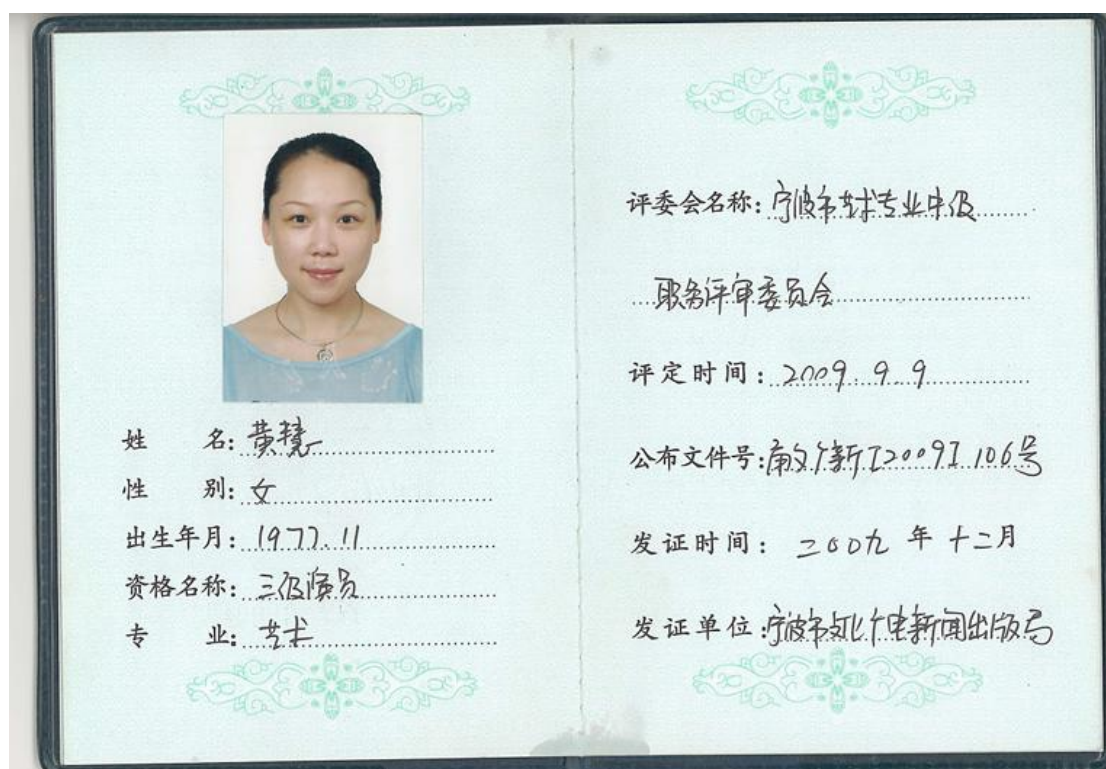 姓 名: 黄慧
性 别: 女
出生年月: 1977.11
资格名称: 三级演员
专 业: 艺术
评委会名称: 宁波市艺术专业中级
职务评审委员会
评定时间: 2009.9.9
公布文件号: 甬文广新[2009]106号
发证时间: 二00九 年 十二月
发证单位: 宁波市文化广电新闻出版局